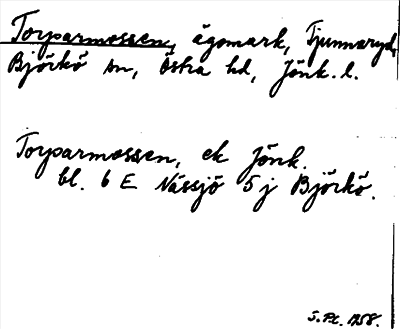 Torparmossen, ägomark, Tjunnaryd,
Björkö sn, Östra hd, Jönk. l.
Torparmossen, ek Jönk.
bl. 6 E Nässjö 5 j Björkö.
S.Px. 1958.